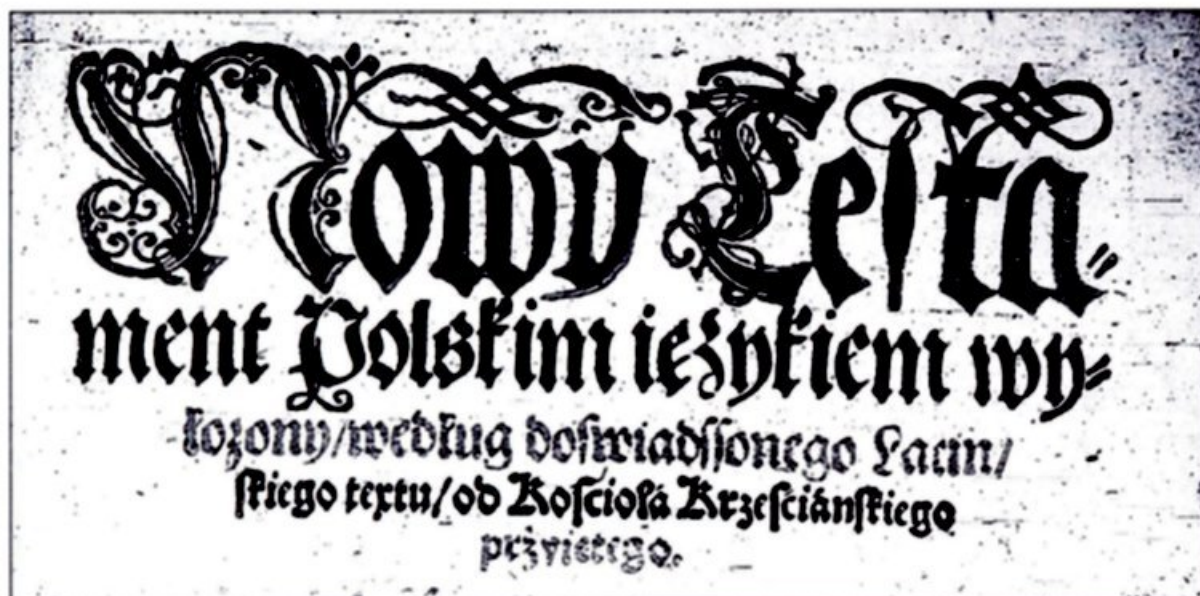 Nowy Testa⸗
ment Polskim ięzykiem wy⸗
łożony/według doſwiadſſonego Lacin/
ſkiego textu/od Koſciolá Krzeſciánſkiego
przyiętego.